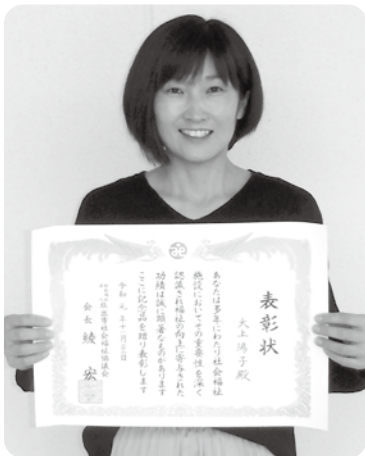 表彰状
大上陽子殿
あなたは多年にわたり社会福祉
施設においてその重要性を深く
認識され福祉の向上に寄与された
功績は誠に顕著なものがあります
ここに記念品を贈り表彰します
令和元年十一月
坂出市社会福祉協議会
会長 綾 宏